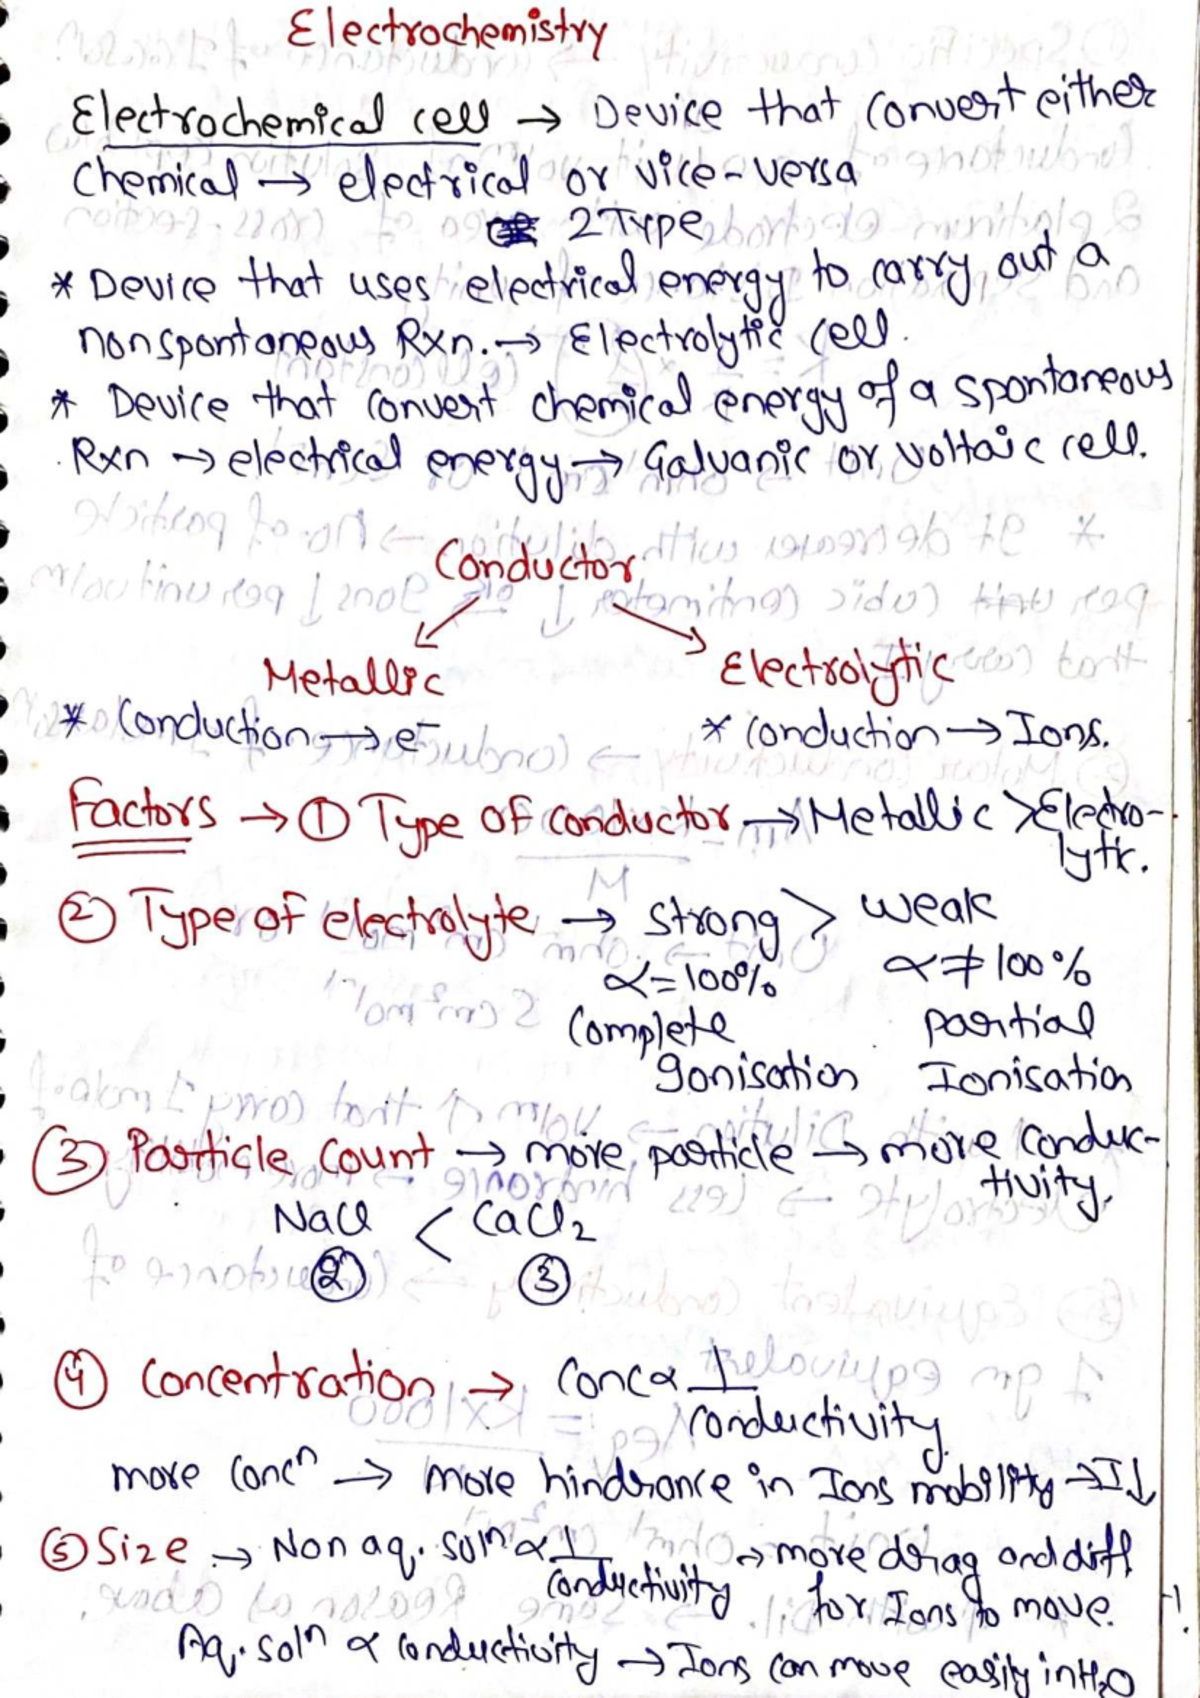 Electrochemistry
Electrochemical cell → Device that convert either
Chemical → electrical or vice-versa
2 Type
* Device that uses electrical energy to carry out a
nonspontaneous Rxn. → Electrolytic cell.
* Device that convert chemical energy of a spontaneous
Rxn → electrical energy → Galvanic or voltaic cell.
Conductor
Metallic Electrolytic
* Conduction → e⁻ * Conduction → Ions.
Factors → ① Type of conductor → Metallic > Electro-
lytic.
② Type of electrolyte → Strong > weak
α = 100% α ≠ 100%
Complete partial
Ionisation Ionisation
③ Particle Count → more particle → more Conduc-
tivity.
NaCl < CaCl₂
② ③
④ Concentration → Conc ∝ 1
conductivity
more Concⁿ → more hindrance in Ions mobility → I↓
⑤ Size → Non aq. solⁿ ∝ 1 → more drag and diff
conductivity for Ions to move.
Aq. solⁿ ∝ conductivity → Ions can move easily in H₂O